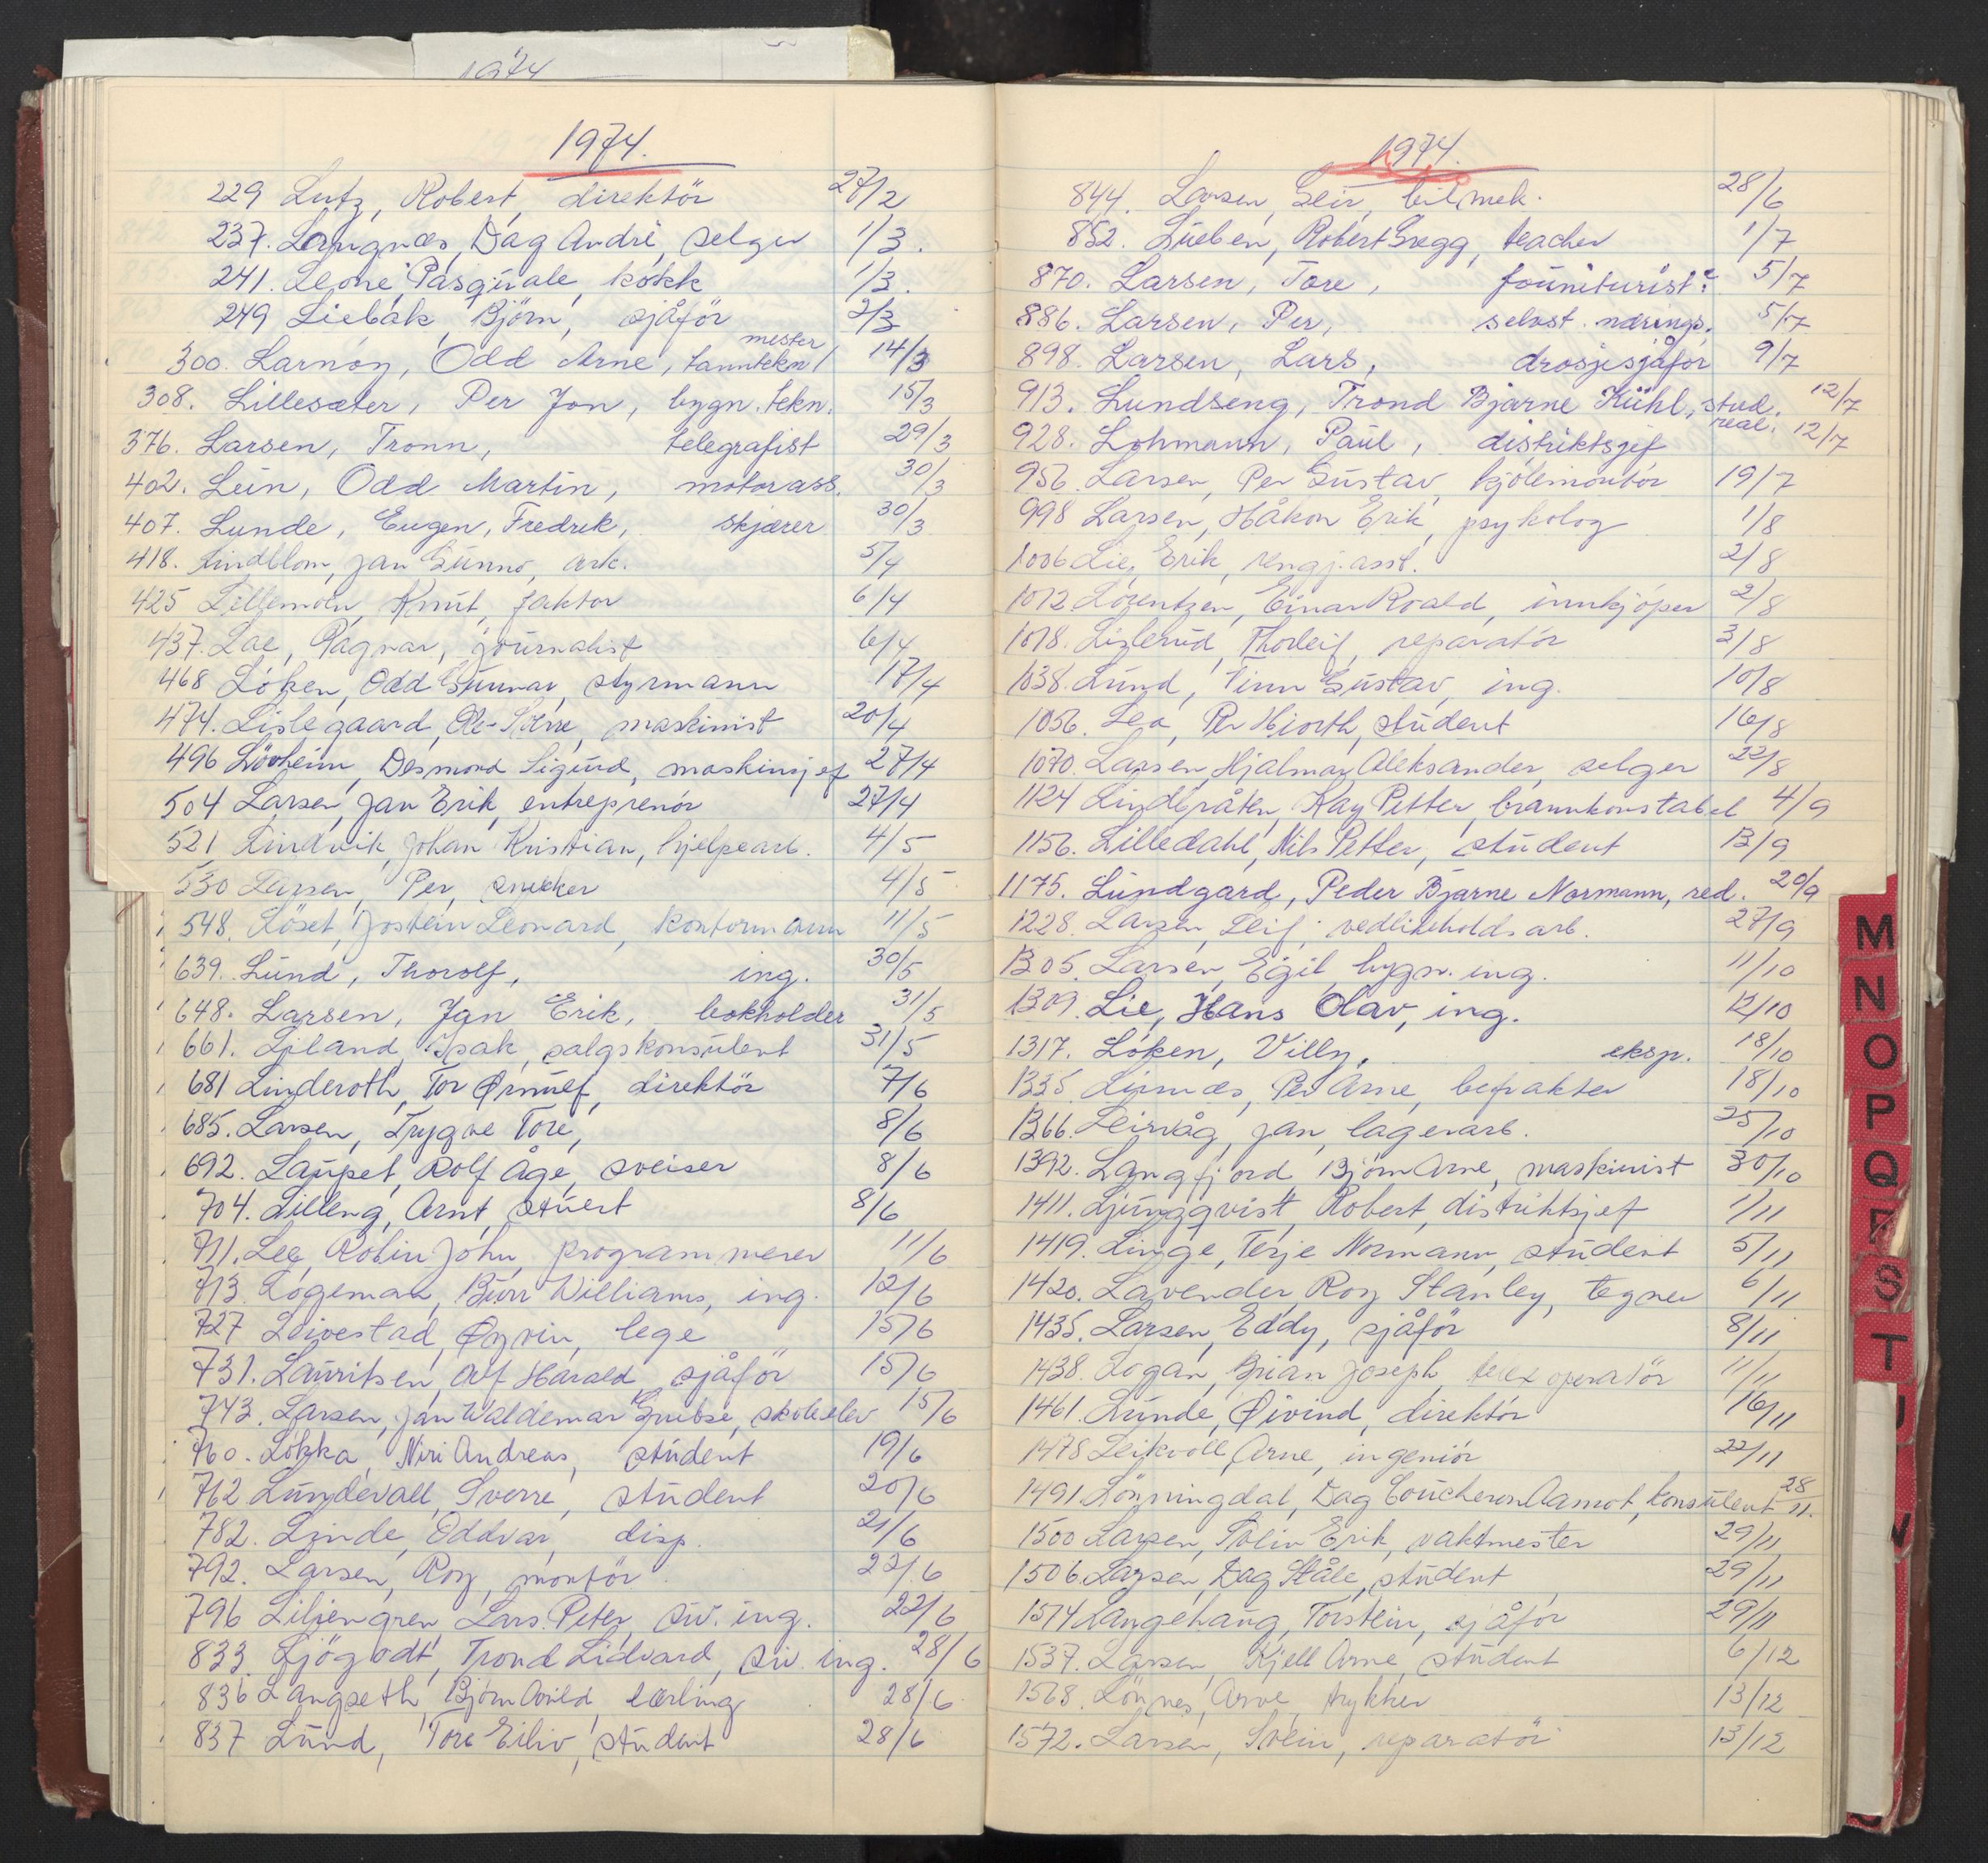 1974
1974.
229 Lutz, Robert, direktör 27/2
237. Langnæs, Dag André, selger 1/3.
241. Leone, Pasquale, kokk 1/3.
249 Liebak, Björn, sjåför 2/3
mester
300. Larnöy, Odd Arne, tanntekn/ 14/3
308. Lillesæter, Per Jon, bygn. tekn. 15/3
376. Larsen, Tronn, telegrafist 29/3
402. Lein, Odd Martin, motorass. 30/3
407. Lunde, Eugen, Fredrik, skjærer 30/3
418. Lindblom, Jan Gunno, ark. 5/4
425 Lilljemoln, Knut, faktor 6/4
437. Lae, Ragnar, journalist 6/4
468 Löken, Odd Gunnar, styrmann 17/4
474. Lislegaard, Ole-Sverre, maskinist 20/4
496 Lövheim, Desmond Sigurd, maskinsjef 27/4
504 Larsen, Jan Erik, entreprenör 27/4
521 Lindvik, Johan Kristian, hjelpearb. 4/5
530 Larsen, Per, snekker 4/5
548. Löset, Jostein Leonard, kontormann 11/5
639. Lund, Thorolf, ing. 30/5
648. Larsen, Jan Erik, bokholder 31/5
661. Ljiland, Isak, salgskonsulent 31/5
681 Linderoth, Tor Ørnulf, direktör 7/6
685. Larsen, Trygve Tore, 8/6
692. Laupet, Rolf Åge, sveiser 8/6
704. Lilleng, Arnt, stuert 8/6
711. Lee, Robin John, programmerer 11/6
713 Logeman, Burr Williams, ing. 12/6
727 Leivestad, Øyvin, lege 15/6
731. Lauritsen, Alf Harald, sjåför 15/6
743. Larsen, Jan Waldemar Grubse, skoleelev 15/6
760. Lökka, Niri Andreas, student 19/6
762 Lundevall, Sverre, student 20/6
782. Linde, Oddvar, disp. 21/6
792. Larsen, Roy, montör 22/6
796 Liljengren, Lars Peter, siv. ing. 22/6
833. Ljögodt, Trond Lidvard, siv. ing. 28/6
836 Langseth, Björn Arild, lærling 28/6
837 Lund, Tore Eiliv, student 28/6
1974.
844. Larsen, Geir, bilmek. 28/6
852. Lueben, Robert Gregg, teacher 1/7
870. Larsen, Tore, founiturist? 5/7
886. Larsen, Per, selvst. nærings. 5/7
898. Larsen, Lars, drosjesjåför 9/7
913. Lundseng, Trond Bjarne Kühl, stud. real. 12/7
928. Lohmann, Paul, distriktsjef 12/7
956. Larsen, Per Gustav, kjölemontör 19/7
998 Larsen, Håkon Erik, psykolog 1/8
1006 Lie, Erik, rengj. asst. 2/8
1012 Lorentzen, Einar Roald, innkjöper 2/8
1018. Lislerud, Thorleif, reparatör 3/8
1038. Lund, Finn Gustav, ing. 10/8
1056. Lea, Per Hiorth, student 16/8
1070. Larsen, Hjalmar Aleksander, selger 22/8
1124 Lindbråten, Kay Petter, brannkonstabel 4/9
1156. Lilledahl, Nils Petter, student 13/9
1175. Lundgård, Peder Bjarne Normann, red. 20/9
1228. Larsen, Leif, vedlikeholdsarb. 27/9
1305. Larsen, Egil, bygn. ing. 11/10
1309. Lie, Hans Olav, ing. 12/10
1317. Löken, Villy, eksp. 18/10
1335. Linnæs, Per Arne, befrakter 18/10
1366. Leirvåg, Jan, lagerarb. 25/10
1392. Langfjord, Björn Arne, maskinist 30/10
1411. Ljungqvist, Robert, distriktsjef 1/11
1419. Linge, Terje Normann, student 5/11
1420. Lavender, Roy Stanley, tegner 6/11
1435. Larsen, Eddy, sjåför 8/11
1438. Logan, Brian Joseph, telexoperatör 11/11
1461. Lunde, Øivind, direktör 16/11
1478 Leikvoll, Arne, ingeniör 22/11
1491. Lönningdal, Dag Coucheron Aamot, konsulent 28/11.
1500 Larsen, Svein Erik, vaktmester 29/11
1506. Larsen, Dag Ståle, student 29/11
1514 Langehaug, Torstein, sjåför 29/11
1537. Larsen, Kjell Arne, student 6/12
1568. Lönnes, Arve, trykker 13/12
1572. Larsen, Svein, reparatör 13/12
M
N
O
P
Q
R
S
T